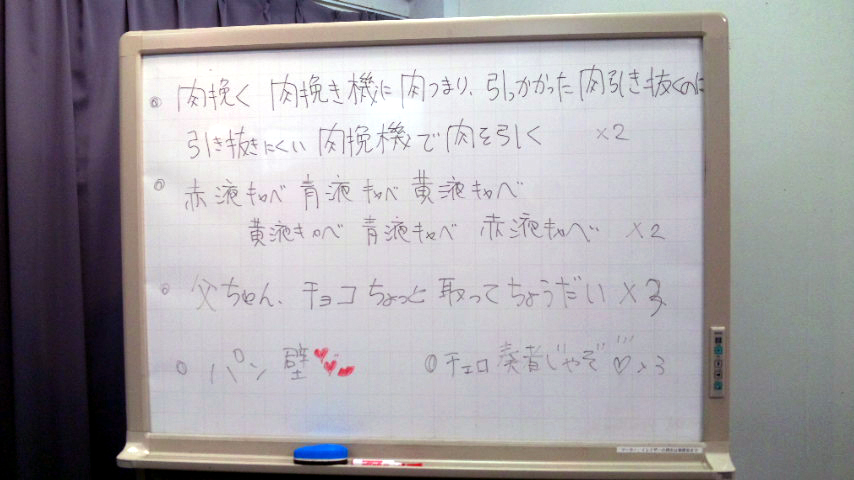 肉挽く 肉挽き機に 肉つまり、引っかかった 肉引き抜くのに
引き抜きにくい 肉挽機で肉を引く ×2
赤液キャベ 青液キャベ 黄液キャベ
黄液キャベ 青液キャベ 赤液キャベ ×2
父ちゃん、チョコちょっと取ってちょうだい ×3
パン壁
チェロ奏者じゃぞ♡×3